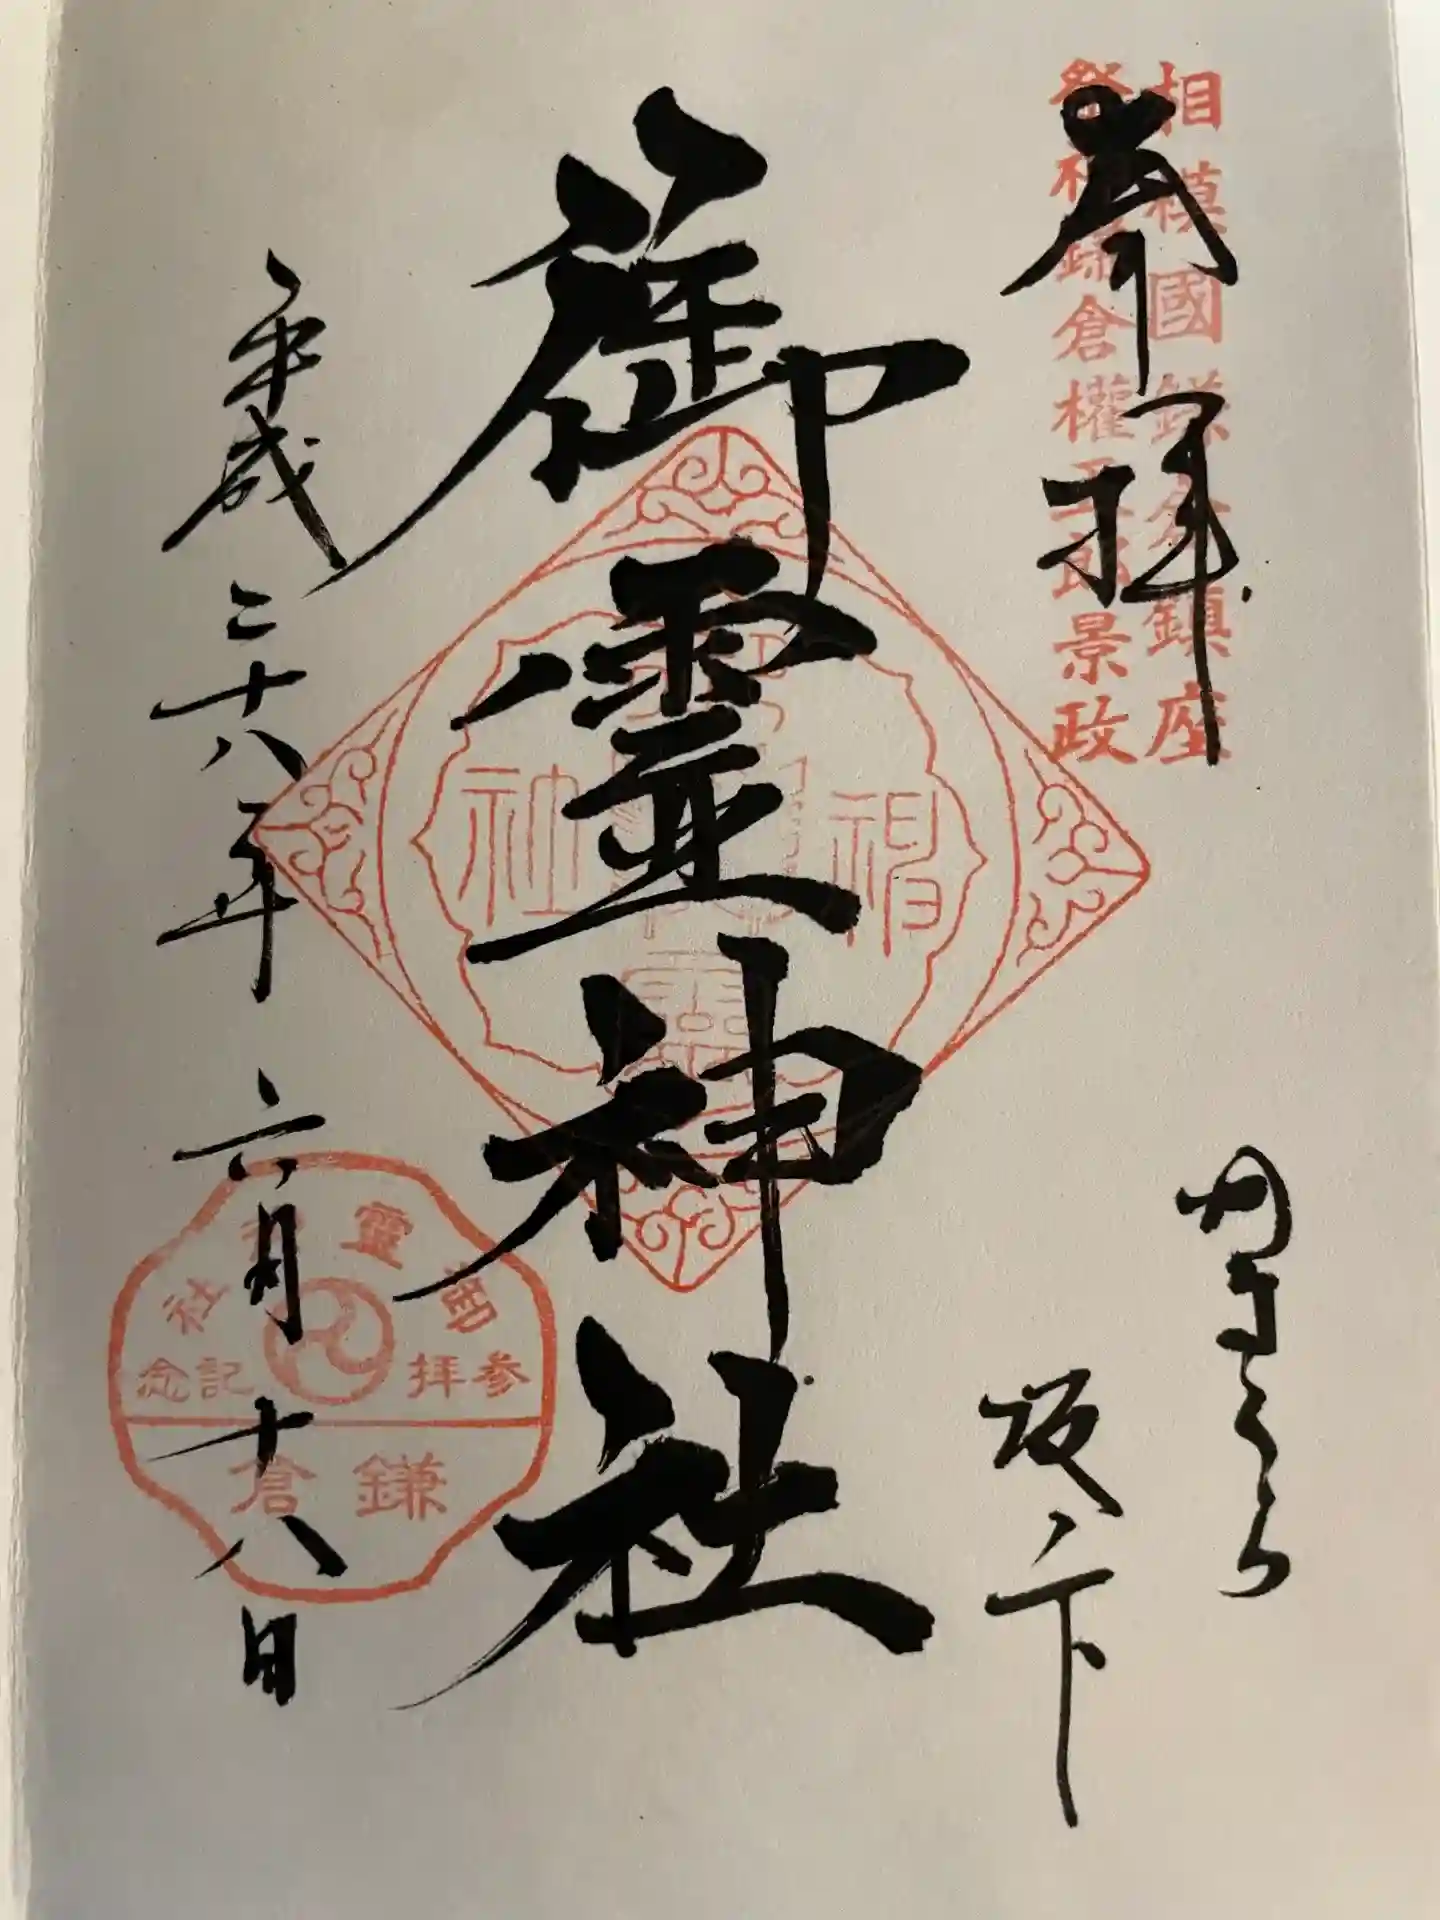 相模國鎌倉鎮座
祭神鎌倉權五郎景政
奉拝
かまくら
坂ノ下
御霊神社
平成二十八年六月十八日
御霊神社
参拝記念
鎌倉